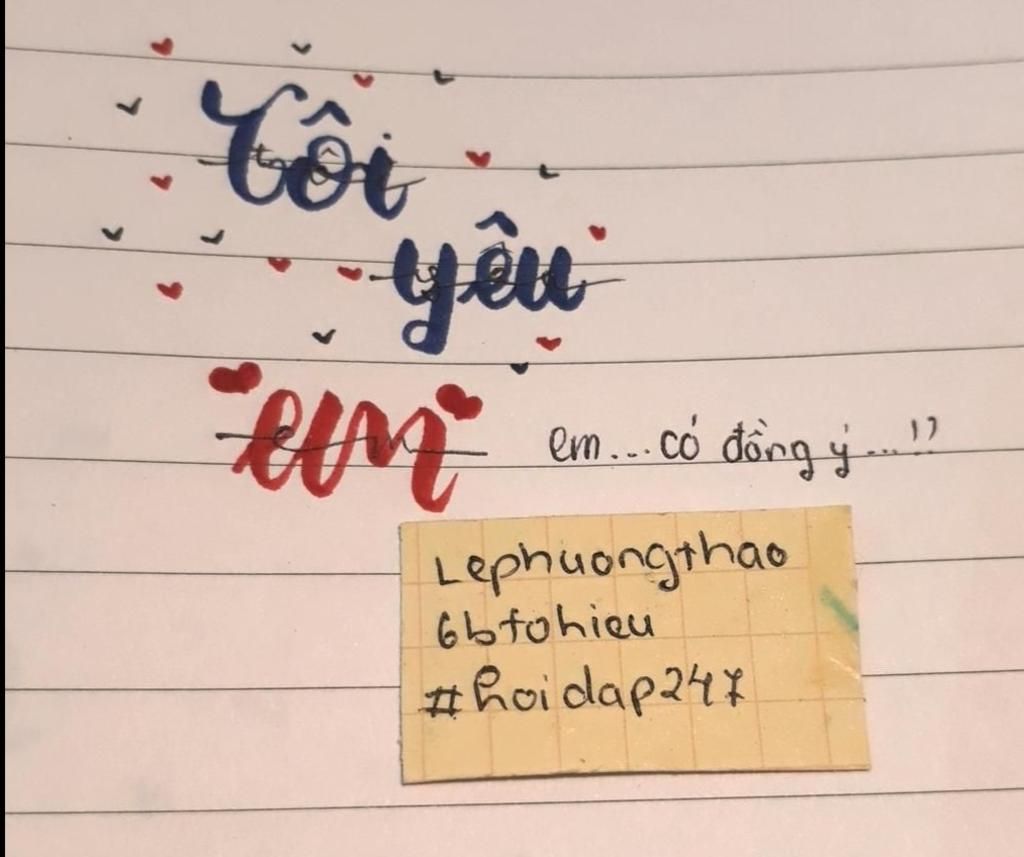 Tôi
yêu
em
em...có đồng ý...!?
Lephuongthao
6btohieu
#hoidap247